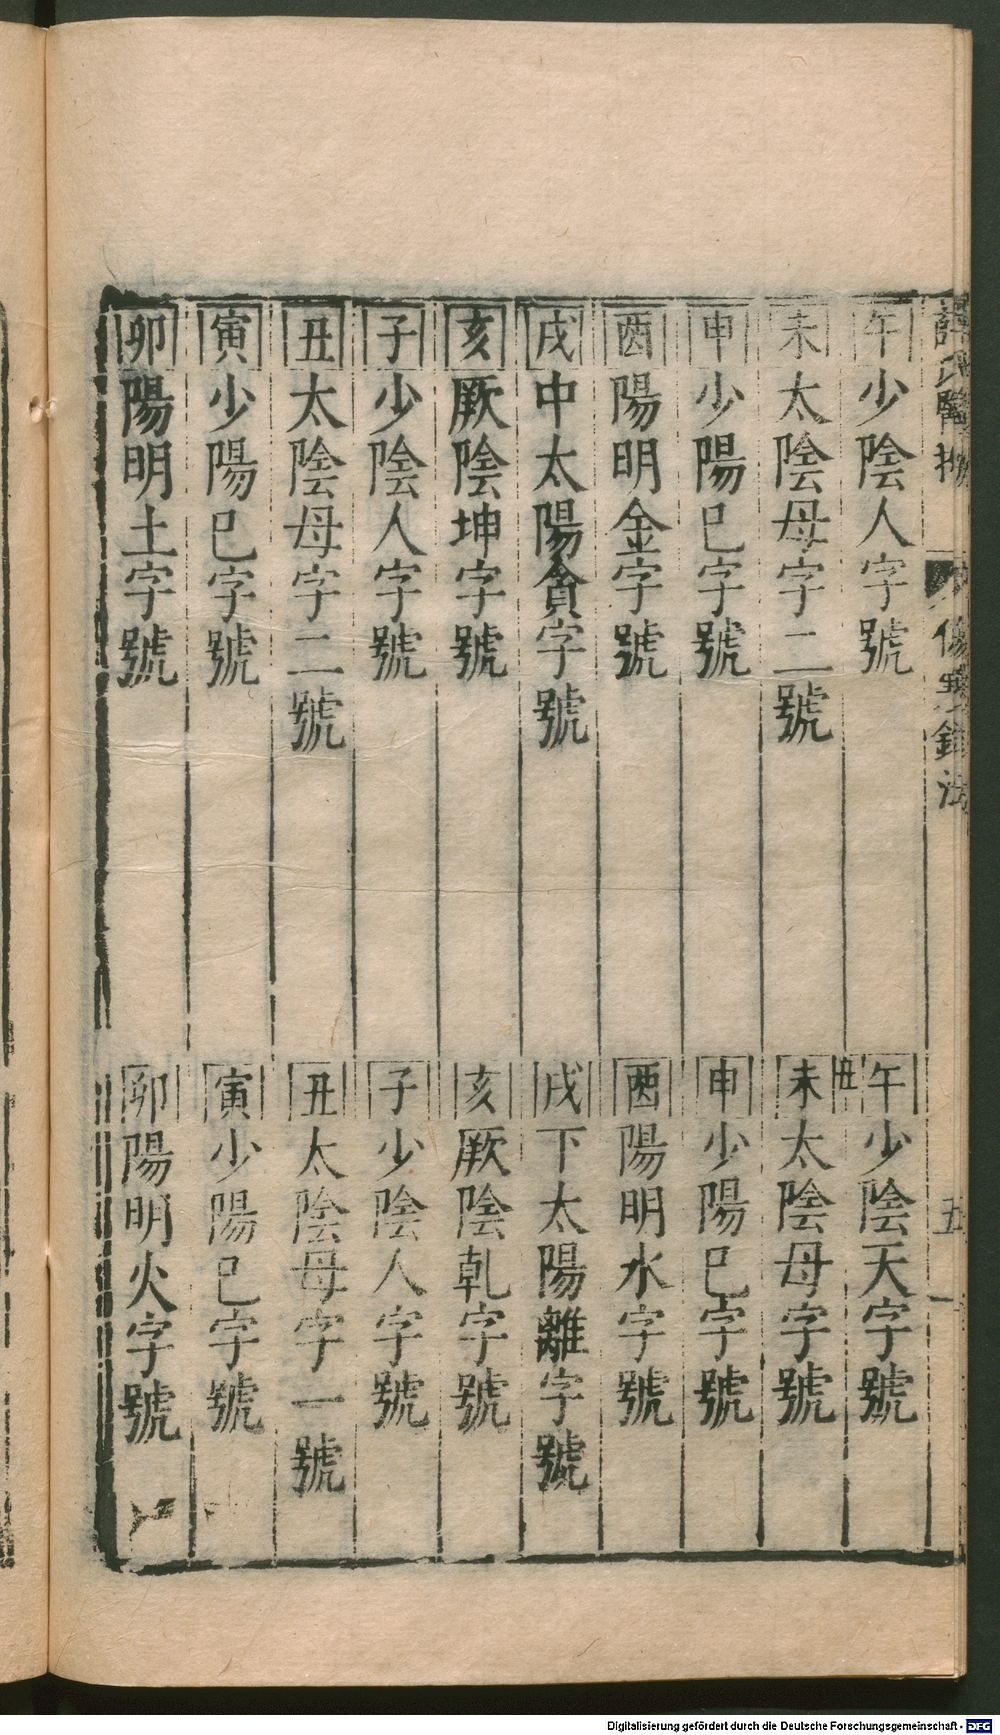 午 少陰人字號
未 太陰母字二號
申 少陽巳字號
酉 陽明金字號
戌 中太陽貪字號
亥 厥陰坤字號
子 少陰人字號
丑 太陰母字二號
寅 少陽巳字號
卯 陽明土字號
午 少陰天字號
丑
未 太陰母字號
申 少陽巳字號
酉 陽明水字號
戌 下太陽離字號
亥 厥陰乹字號
子 少陰人字號
丑 太陰母字一號
寅 少陽巳字號
卯 陽明火字號
五
Digitalisierung gefördert durch die Deutsche Forschungsgemeinschaft - DFG